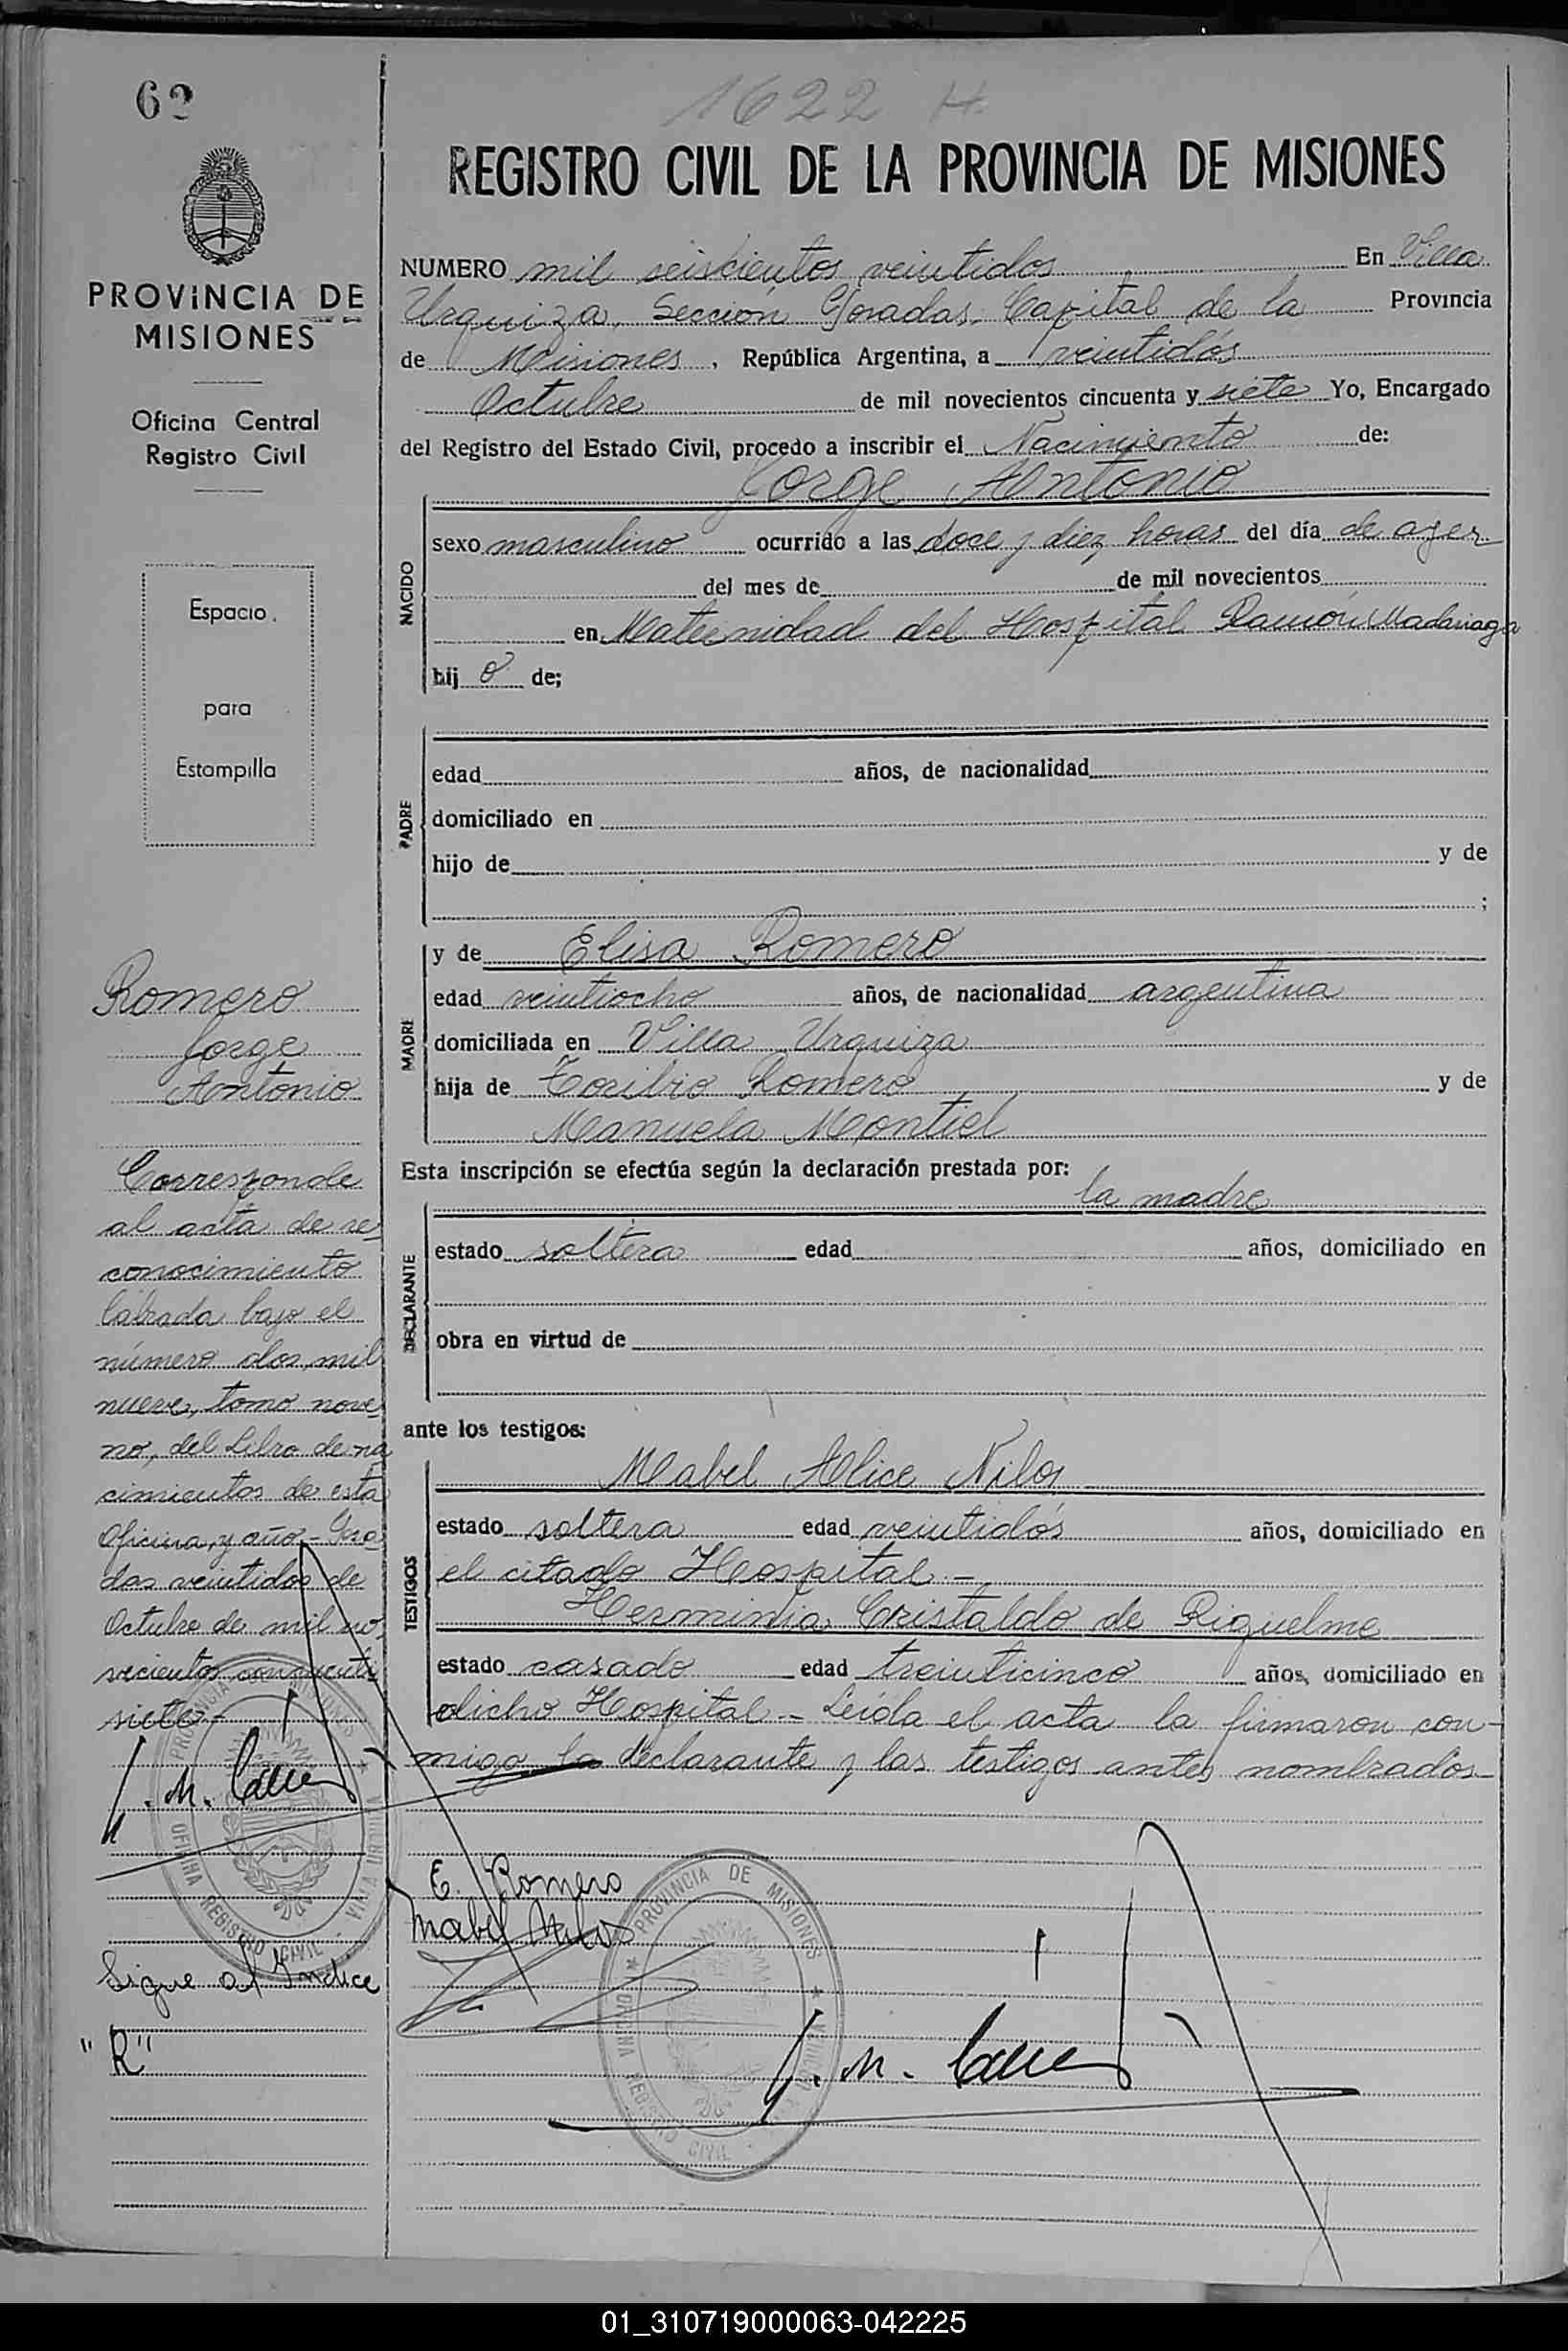 62
1622 H.
REGISTRO CIVIL DE LA PROVINCIA DE MISIONES
PROVINCIA DE
MISIONES
Oficina Central
Registro Civil
Espacio
para
Estampilla
Romero
Jorge
Antonio
Corresponde
al acta de re
conocimiento
labrada bajo el
número dos mil
nueve, tomo nove
no, del Libro de na
cimientos de esta
Oficina, y año - Posa
das veintidos de
Octubre de mil no
vecientos cincuenta
siete -
Sigue al Indice
"R"
NUMERO mil seiscientos veintidos En Villa
Urquiza, Sección Posadas, Capital de la Provincia
de Misiones, República Argentina, a veintidós
Octubre de mil novecientos cincuenta y siete Yo, Encargado
del Registro del Estado Civil, procedo a inscribir el Nacimiento de:
Jorge Antonio
NACIDO
sexo masculino ocurrido a las doce y diez horas del día de ayer
del mes de de mil novecientos
en Maternidad del Hospital Ramón Madariaga
hij o de;
PADRE
edad años, de nacionalidad
domiciliado en
hijo de y de
;
MADRE
y de Elisa Romero
edad veintiocho años, de nacionalidad argentina
domiciliada en Villa Urquiza
hija de Toribio Romero y de
Manuela Montiel
Esta inscripción se efectúa según la declaración prestada por:
la madre
DECLARANTE
estado soltera edad años, domiciliado en
obra en virtud de
ante los testigos:
TESTIGOS
Mabel Alice Nilos
estado soltera edad veintidós años, domiciliado en
el citado Hospital. -
Herminia Cristaldo de Riquelme
estado casado edad treinticinco años, domiciliado en
dicho Hospital - Leída el acta la firmaron con-
migo la declarante y las testigos antes nombrados -
E. Romero
Mabel Nilos
PROVINCIA DE MISIONES
OFICINA REGISTRO CIVIL
01_310719000063-042225